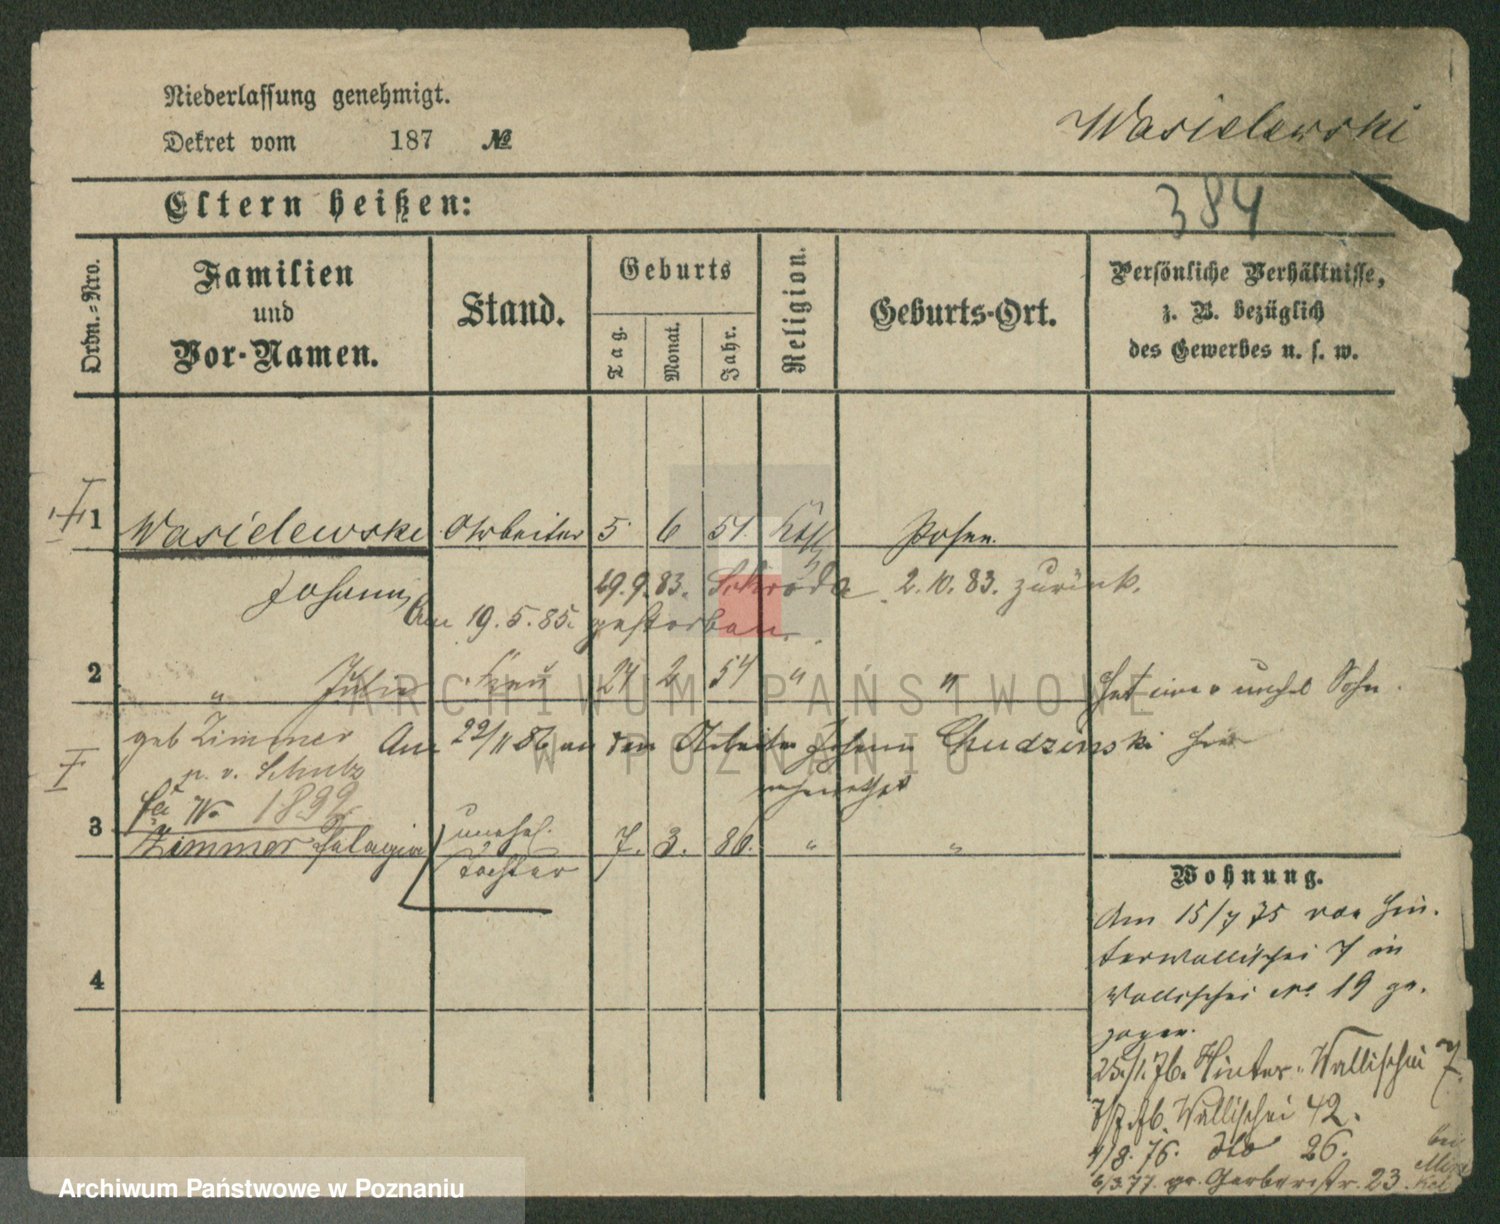 Niederlassung genehmigt.
Dekret vom 187 №
Wasielewski
Eltern heißen:
384
Ordn.-Nro.
Familien
und
Vor-Namen.
Stand.
Geburts
Tag.
Monat.
Jahr.
Religion.
Geburts-Ort.
Persönliche Verhältnisse,
z. B. bezüglich
des Gewerbes u. s. w.
1 Wasielewski Arbeiter 5 6 51. Kath Posen.
Johann 19.9.83. Schroda 2.10.83. zurück.
Am 19.5.85. gestorben.
2 " Julie Frau 24 2 54 " " Hat einen unehel Sohn
geb Zimmer Am 22/11 86 an den Arbeiter Johann Chudzinski hier
p. v. Schulz
verheirathet
fa No 1899
3 Zimmer Pelagia unehel. 7. 3. 80. " "
Tochter
Wohnung.
Am 15/7 75 von Hin-
terwallischei 7 in
Wallischei No 19 ge-
zogen.
4
25./1.76. Hinter-Wallischei 7.
Wallischei 42.
1/8. 76. dto 26.
6/3 77. gr. Gerberstr. 23. bei
ARCHIWUM PAŃSTWOWE
W POZNANIU
Archiwum Państwowe w Poznaniu